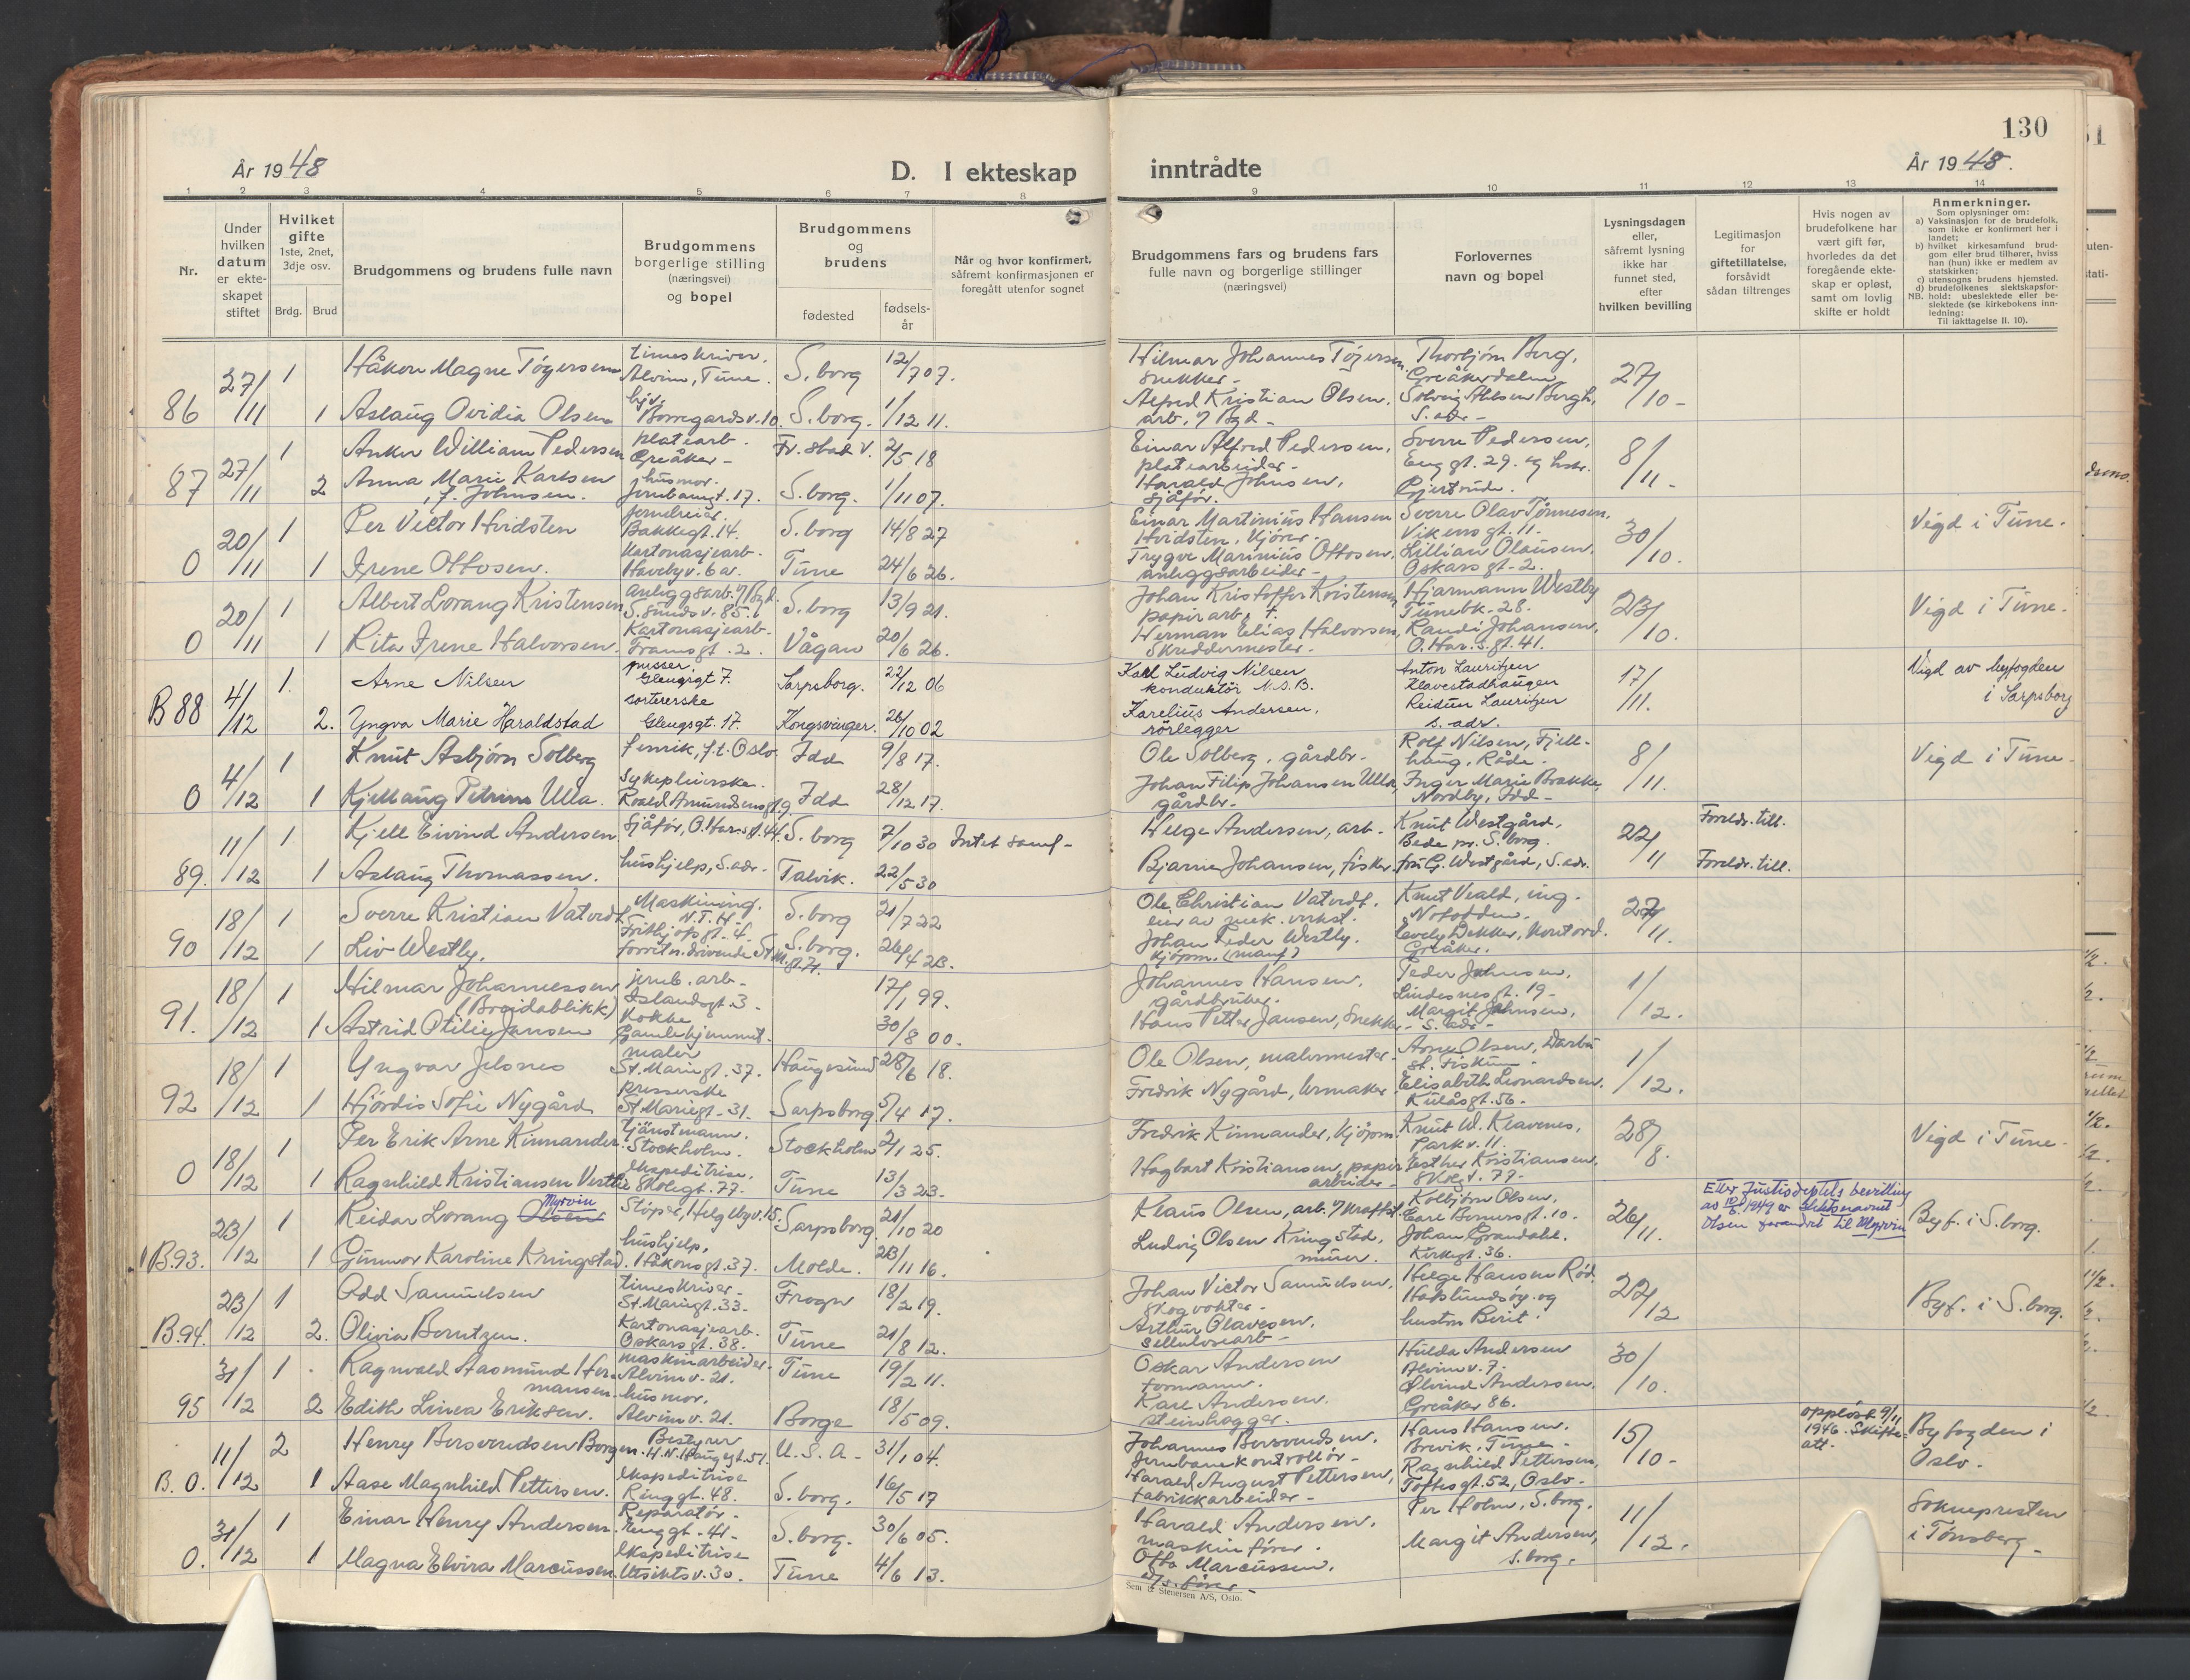 130
År 1948
D. I ekteskap
inntrådte
År 1948.
1 2 3 4 5 6 7 8 9 10 11 12 13 14
Nr.
Under
hvilken
datum
er ekte-
skapet
stiftet
Hvilket
gifte
1ste, 2net,
3dje osv.
Brdg. Brud
Brudgommens og brudens fulle navn
Brudgommens
borgerlige stilling
(næringsvei)
og bopel
Brudgommens
og
brudens
fødested
fødsels-
år
Når og hvor konfirmert,
såfremt konfirmasjonen er
foregått utenfor sognet
Brudgommens fars og brudens fars
fulle navn og borgerlige stillinger
(næringsvei)
Forlovernes
navn og bopel
Lysningsdagen
eller,
såfremt lysning
ikke har
funnet sted,
efter
hvilken bevilling
Legitimasjon
for
giftetillatelse,
forsåvidt
sådan tiltrenges
Hvis nogen av
brudefolkene har
vært gift før,
hvorledes da det
foregående ekte-
skap er opløst,
samt om lovlig
skifte er holdt
Anmerkninger.
Som oplysninger om:
a) Vaksinasjon for de brudefolk,
som ikke er konfirmert her i
landet;
b) hvilket kirkesamfund brud-
gom eller brud tilhører, hviss
han (hun) ikke er medlem av
statskirken;
c) utensogns brudens hjemsted.
d) brudefolkenes slektskapsfor-
NB. hold: ubeslektede eller be-
slektede (se kirkebokens inn-
ledning:
Til iakttagelse II. 10).
86 27/11 1 Håkon Magne Tøgersen timeskriver, Alvim, Tune. S.borg 12/7 07. Hilmar Johannes Tøgersen, snekker - Thorbjørn Berg, Greåkerdalen 27/10 -
1 Aslaug Ovidia Olsen hjv. Borregaardsv. 10. S.borg. 1/12 11. Alfred Kristian Olsen, arb. v/ Bgd - Solveig Ahlsen Bergh, S. adr -
87 27/11 1 Anker William Pedersen platearb. Greåker - Fr.stad v. 2/5 18 Einar Alfred Pedersen, platearbeider - Sverre Pedersen, Enggt. 29. og hstr. 8/11 -
2 Anna Marie Karlsen, f. Johnsen. husmor. Jernbanegt. 17. S.borg. 1/11 07. Harald Johnsen, sjåfør.
0 20/11 1 Per Victor Hvidsten Bakkegt. 14. S.borg 14/8 27 Einar Martinius Hansen Hvidsten, kjører. Sverre Olav Tønnesen, Vikensgt. 11. 30/10. Vigd i Tune.
1 Irene Ottosen. Kartonasjearb. Havebyv. 6a. Tune 24/6 26. Trygve Marinius Ottosen, anleggsarbeider - Lillian Olausen, Oskarsgt. 2.
0 20/11 1 Albert Lorang Kristensen anleggsarb. v/ Bgd. S.sundsv. 85. S.borg 13/9 21. Johan Kristoffer Kristensen papirarb. f. Hjarmann Westby Tunebk. 28. 23/10. Vigd i Tune.
1 Rita Irene Halvorsen. Kartonasjearb. Framsgt. 2. Vågan 20/6 26. Herman Elias Halvorsen, Skreddermester. Randi Johansen, O. Har.s.gt. 41.
B 88 4/12 1. Arne Nilsen pusser. Glengsgt 7. Sarpsborg. 22/12 06 Karl Ludvig Nilsen konduktør N.S.B. Anton Lauritzen Klavestadhaugen 17/11. Vigd av byfogden i Sarpsborg
2. Yngva Marie Haraldstad sortererske Glengsgt. 17. Kongsvinger. 26/10 02 Karelius Andersen, rørlegger Reidun Lauritzen s. adr.
0 4/12 1 Knut Asbjørn Solberg fenrik, f.t. Oslo. Idd 9/8 17. Ole Solberg, gårdbr. Rolf Nilsen, Fjellhaug, Råde. 8/11. Vigd i Tune.
1 Kjellaug Petrine Ulla. Sykepleierske. Roald Amundsensgt. 9 Idd 28/12 17. Johan Filip Johansen Ulla, gårdbr. Inger Marie Brakke, Nordby, Idd -
89. 11/12 1 Kjell Eivind Andersen Sjåfør, O. Har.s.gt. 44. S.borg 7/10 30 Intet samf - Helge Andersen, arb. Knut Westgård, Bede pr. S.borg. 22/11 Foreldr. till.
1 Aslaug Thomassen. hushjelp, S. adr. Talvik. 22/5 30 Bjarne Johansen, fisker fru G. Westgård, S. adr. Foreldr. till.
90 18/12 1 Sverre Kristian Vatvedt Maskining. N.T.H. Frithjofsgt. 4. S.borg 21/7 22 Ole Christian Vatvedt. eier av mek. verkst. Knut Veald, ing. Notodden. 27/11.
1 Liv Westby. forretn.drivende St.M.gt. S.borg. 26/4 23. Johan Peder Westby. kjøpm. (manuf.) Evely Dekker, kontord. Greåker.
91. 18/12 1 Hilmar Johannessen (Breidablikk) jernb. arb - Islandsgt. 3 - 17/1 99. Johannes Hansen, gårdbruker. Peder Johnsen, Lindesnesgt. 19 - 1/12.
1 Astrid Otilie Jansen Kokke Gamlehjemmet. 30/8 00. Hans Petter Jansen, snekker - Margit Johnsen, S. adr -
92 18/12 1 Yngvar Jelsnes maler St. Mariegt. 37. Haugesund 28/6 18. Ole Olsen, malermester. Arne Olsen, Darbu st. Fiskum - 1/12.
1 Hjørdis Sofie Nygård presserske St. Mariegt. 31. Sarpsborg 5/4 17. Fredrik Nygård, urmaker. Elisabeth Leonardsen. Kulåsgt. 56.
0 18/12 1 Per Erik Arne Kinnander. tjänstmann. Stockholm. Stockholm 2/1 25. Fredrik Kinnander, kjøpm. Knut W. Klavenes, Parkv. 11. 28/8. Vigd i Tune.
1 Ragnhild Kristiansen Vestlie ekspeditrise, Skolegt. 77. Tune 13/3 23. Hagbart Kristiansen, papirarbeider - Esther Kristiansen. Skolegt. 77.
B.93. 23/12 1 Reidar Lorang Olsen Myrvin Støper, Helgebyv. 15. Sarpsborg 21/10 20 Klaus Olsen, arb. v/ Kraftst. Kolbjørn Olsen, Carl Bornersgt. 10. 26/11. Etter Justisdeptets bevilling av 10/6 1949 er slektsnavnet Olsen forandret til Myrvin Byf. i S.borg.
1 Gunvor Karoline Kringstad. hushjelp, Håkonsgt. 37. Molde. 23/11 16. Ludvig Olsen Kringstad, murer. Johan Grandahl. Kirkegt. 36.
B.94. 23/12 1 Odd Samuelsen timeskriver - St. Mariegt. 33. Frogn 18/2 19. Johan Victor Samuelsen, skogvokter - Helge Hansen Rød. Hafslundsøy og hustru Berit. 22/12 Byf. i S.borg.
2. Olivia Berntzen. Kartonasjearb. Oskarsgt. 38. Tune 21/8 12. Arthur Olavesen, sellulosearb -
95 31/12 1 Ragnvald Aasmund Hermansen. maskinarbeider. Alvimv. 21. Tune 19/2 11. Oskar Andersen formann. Hulda Andersen Alvimv. 7. 30/10.
2 Edith Linea Eriksen. husmor. Alvimv. 21. Borge 18/5 09. Karl Andersen. steinhogger. Øivind Andersen. Greåker 86.
B. 0. 11/12 2 Henry Bersvendsen Borgen. Bestyrer H.N. Haugesgt. 51. U.S.A. 31/1 04. Johannes Bersvendsen. Jernbanekontrollør - Hans Hansen. Brevik, Tune - 15/10 - oppløst 9/11 1946. Skifte att. Byfogden i Oslo.
1 Aase Magnhild Pettersen. ekspeditrise Ringgt. 48. S.borg. 16/5 17 Harald August Pettersen, fabrikkarbeider - Ragnhild Pettersen, Toftesgt. 52, Oslo -
0. 31/12 1 Einar Henry Andersen. Reparatør - Enggt. 41 - S.borg. 30/6 05. Harald Andersen. maskinfører. Per Holm, S.borg. 11/12. Soknepresten i Tønsberg -
1 Magna Elvira Marcussen. Ekspeditrise Utsiktsv. 30. Tune 4/6 13. Otto Marcussen. Margit Andersen, S.borg.
Sem & Stenersen A/S, Oslo.